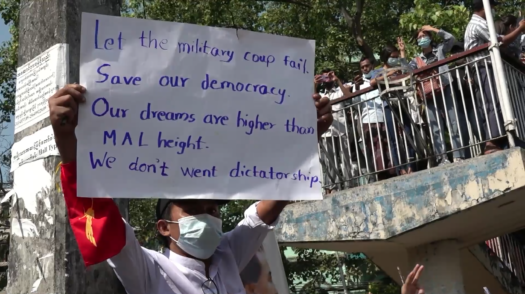 Let the military coup fail.
Save our democracy.
Our dreams are higher than
MAL height.
We don't went dictatorship.